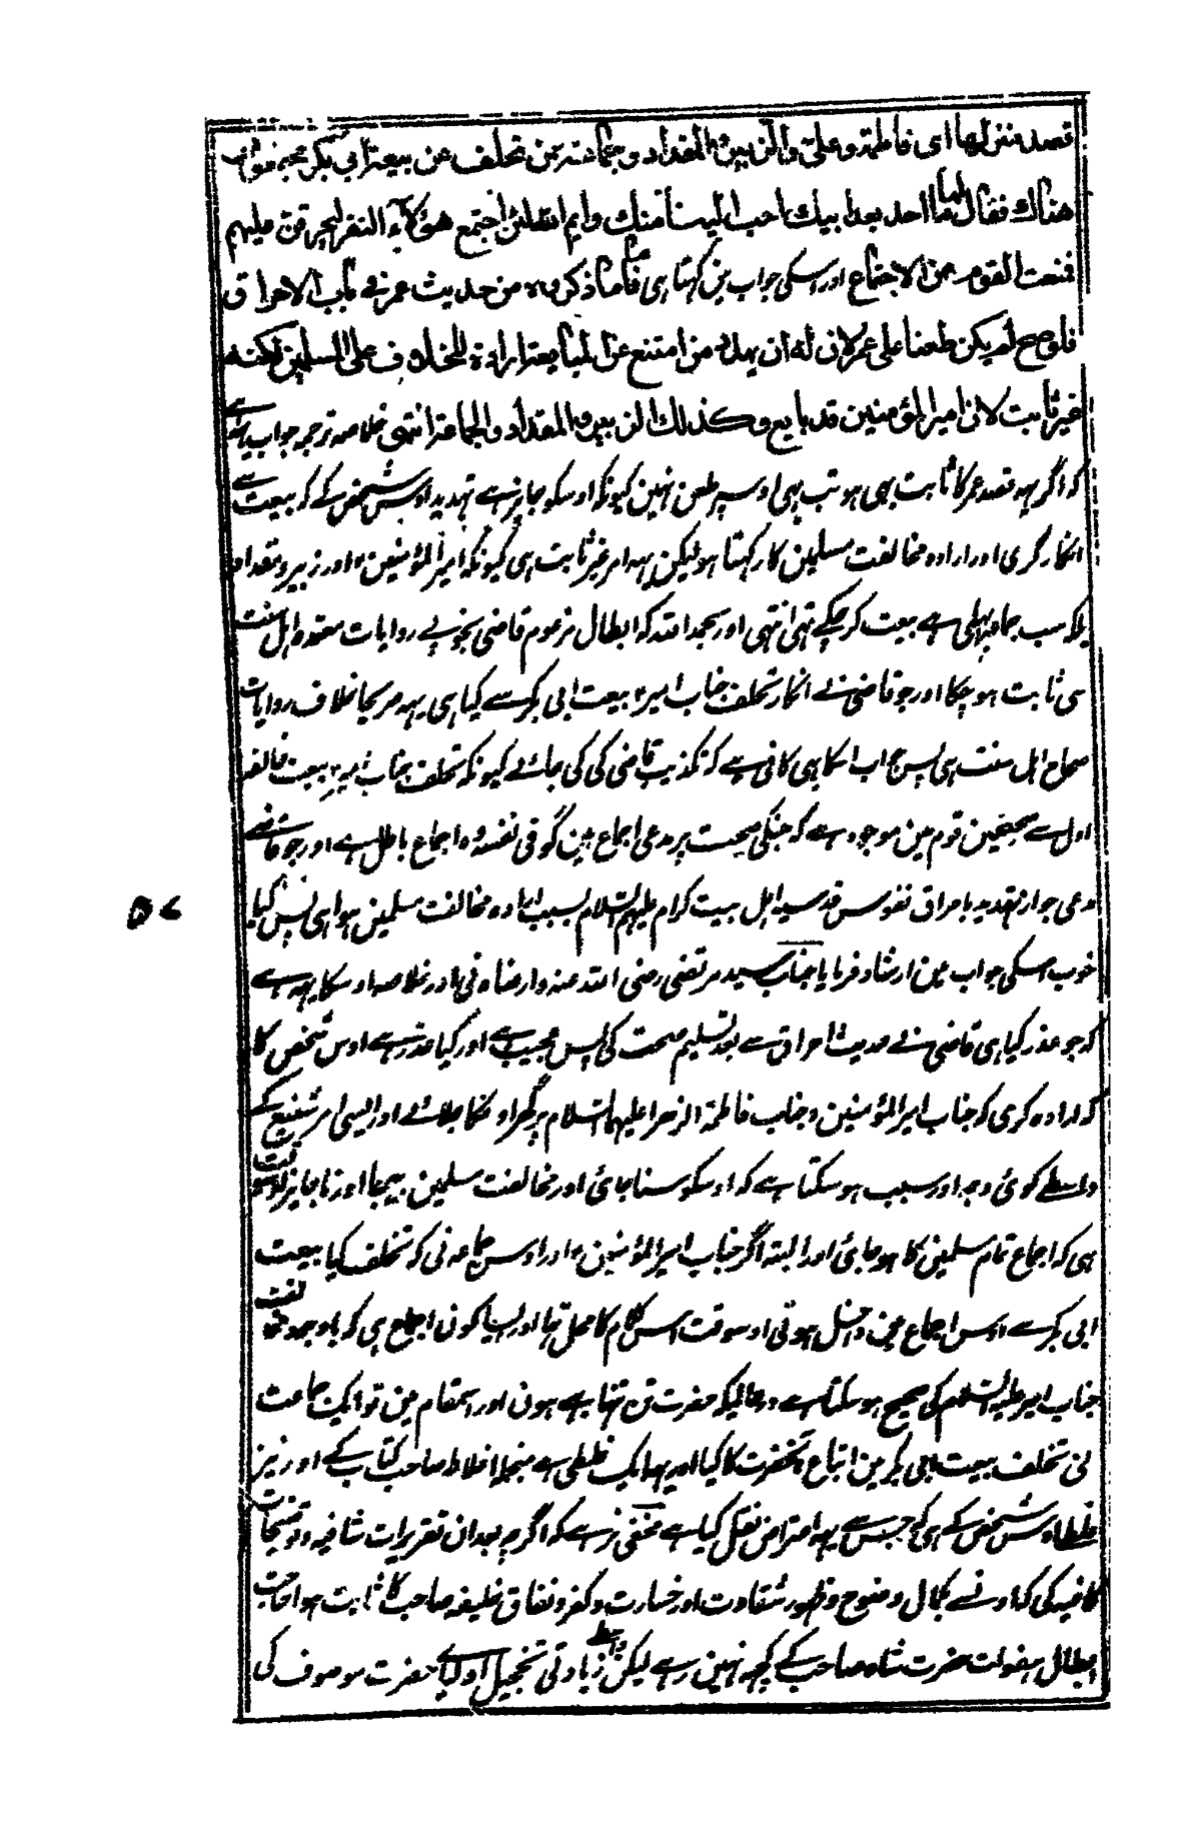 قصد منزلها ای فاطمة وعلی والزبیر والمقداد وجماعة ممن تخلف عن بیعة ابی بکر یجتمعون
هناک فقال لها ما احد بعد ابیک احب الینا منک وایم الله لئن اجتمع هؤلاء النفر لیحرقن علیهم
فمنعت القوم من الاجتماع اور اسکی جواب مین کہتا ہی فاما ما ذکروه من حدیث عمر فی باب الاحراق
فلو صح لم یکن طعنا علی عمر لان له ان یهدد من امتنع عن المبایعة ارادة للخلاف علی المسلمین لکنه
غیر ثابت لان امیر المؤمنین قد بایع وکذلک الزبیر والمقداد والجماعة انتهی خلاصہ ترجمہ جواب یہ ہے
کہ اگر یہہ قصد عمر کا ثابت بھی ہو تب بہی اوسپر طعن نہین کیونکہ اوسکو جایز ہے تہدید اوس شخص کے کہ بیعت سے
انکار کری اور ارادہ مخالفت مسلمین کا رکہتا ہو لیکن یہہ امر غیر ثابت ہی کیونکہ امیر المؤمنین اور زبیر و مقداد
بلکہ سب جماعہ پہلی سے بیعت کر چکے تہی انتہی اور بحمد اللہ کہ ابطال مزعوم قاضی بخوبی روایات معتمدہ اہل سنت
سی ثابت ہو چکا اور جو قاضی نے انکار تخلف جناب امیر بیعت ابی بکر سے کیا ہی یہہ صریحا خلاف روایات
صحاح اہل سنت ہی پس جواب اسکا یہی کافی ہے کہ تکذیب قاضی کی کی جائے کیونکہ تخلف جناب امیر بیعت خلیفہ
اول سے صحیحین قوم مین موجود ہے کہ جنکی صحت پر مدعی اجماع ہین گو فی نفسہ وہ اجماع باطل ہے اور جو قاضی
مدعی جواز تہدید باحراق نفوس قدسیہ اہل بیت کرام علیہم السلام بسبب ارادہ مخالفت مسلمین ہوا ہی پس کیا
خوب اسکی جواب مین ارشاد فرمایا جناب سید مرتضی رضی اللہ عنہ وارضاہ نی اور خلاصہ اوسکا یہہ ہے
کہ جو عذر کیا ہی قاضی نے حدیث احراق سے بعد تسلیم صحت کی پس عجیب ہے اور کیا عذر ہے اوس شخص کا
کہ ارادہ کری کہ جناب امیر المؤمنین و جناب فاطمۃ الزہرا علیہما السلام پر گھر اونکا جلائے اور ایسی امر شنیع کے
واسطے کوئ وجہ اور سبب ہو سکتا ہے کہ اوسکو سنا جائ اور مخالفت مسلمین بیجا اور ناجایز تو اوسوقت
ہی کہ اجماع تمام مسلمین کا ہو جائ اور البتہ اگر جناب امیر المؤمنین اور اوس جماعہ نی کہ تخلف کیا بیعت
ابی بکر سے اوس اجماع مین داخل ہوتی اوسوقت اس کلام کا محل تہا اور ایسا کون اجماع ہی کہ باوجود مخالفت
جناب امیر علیہ السلام کی صحیح ہو سکتا ہے درحالیکہ حضرت تن تنہا بہی ہون اور اسمقام مین تو ایک جماعت
نی تخلف بیعت ابی بکر مین اتباع آنحضرت کا کیا اور یہہ ایک غلطی ہے منجملہ اغلاط صاحب کتاب کے اور نیز
غلط اوس شخص کے ہی کہ جس سے یہہ اعتراض نقل کیا ہے مخفی نرہے کہ اگرچہ بعد ان تقریرات شافیہ و توضیحات
کافیہ کی کہ اونسے بکمال وضوح و ظہور شقاوت اور خسارت و کفر و نفاق خلیفہ صاحب کا ثابت ہوا حاجت
ابطال ہفوات حضرت شاہ صاحب کے کچھہ نہین رہے لیکن واسطے زیادتی تخجیل اولیاے حضرت موصوف کی
۵۷